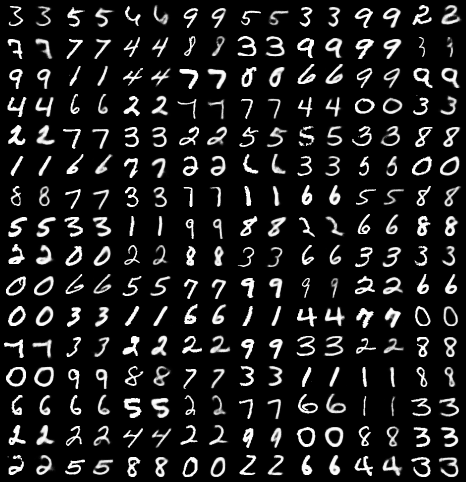 3 3 5 5 6 6 9 9 5 5 3 3 9 9 2 2
7 7 7 7 4 4 8 8 3 3 9 9 9 9 3 3
9 9 1 1 4 4 7 7 8 8 6 6 9 9 9 9
4 4 6 6 2 2 7 7 7 7 4 4 0 0 3 3
2 2 7 7 3 3 2 2 5 5 5 5 3 3 8 8
1 1 6 6 7 7 2 2 6 6 3 3 5 5 0 0
8 8 7 7 3 3 7 7 1 1 6 6 5 5 8 8
5 5 3 3 1 1 9 9 8 8 2 2 6 6 8 8
2 2 0 0 2 2 8 8 3 3 6 6 3 3 3 3
0 0 6 6 5 5 7 7 9 9 9 9 2 2 6 6
0 0 3 3 1 1 6 6 1 1 4 4 7 7 0 0
7 7 3 3 2 2 2 2 9 9 3 3 2 2 8 8
0 0 9 9 8 8 7 7 3 3 1 1 1 1 8 8
6 6 6 6 5 5 2 2 7 7 6 6 1 1 3 3
2 2 2 2 4 4 2 2 9 9 0 0 8 8 3 3
2 2 5 5 8 8 0 0 2 2 6 6 4 4 3 3